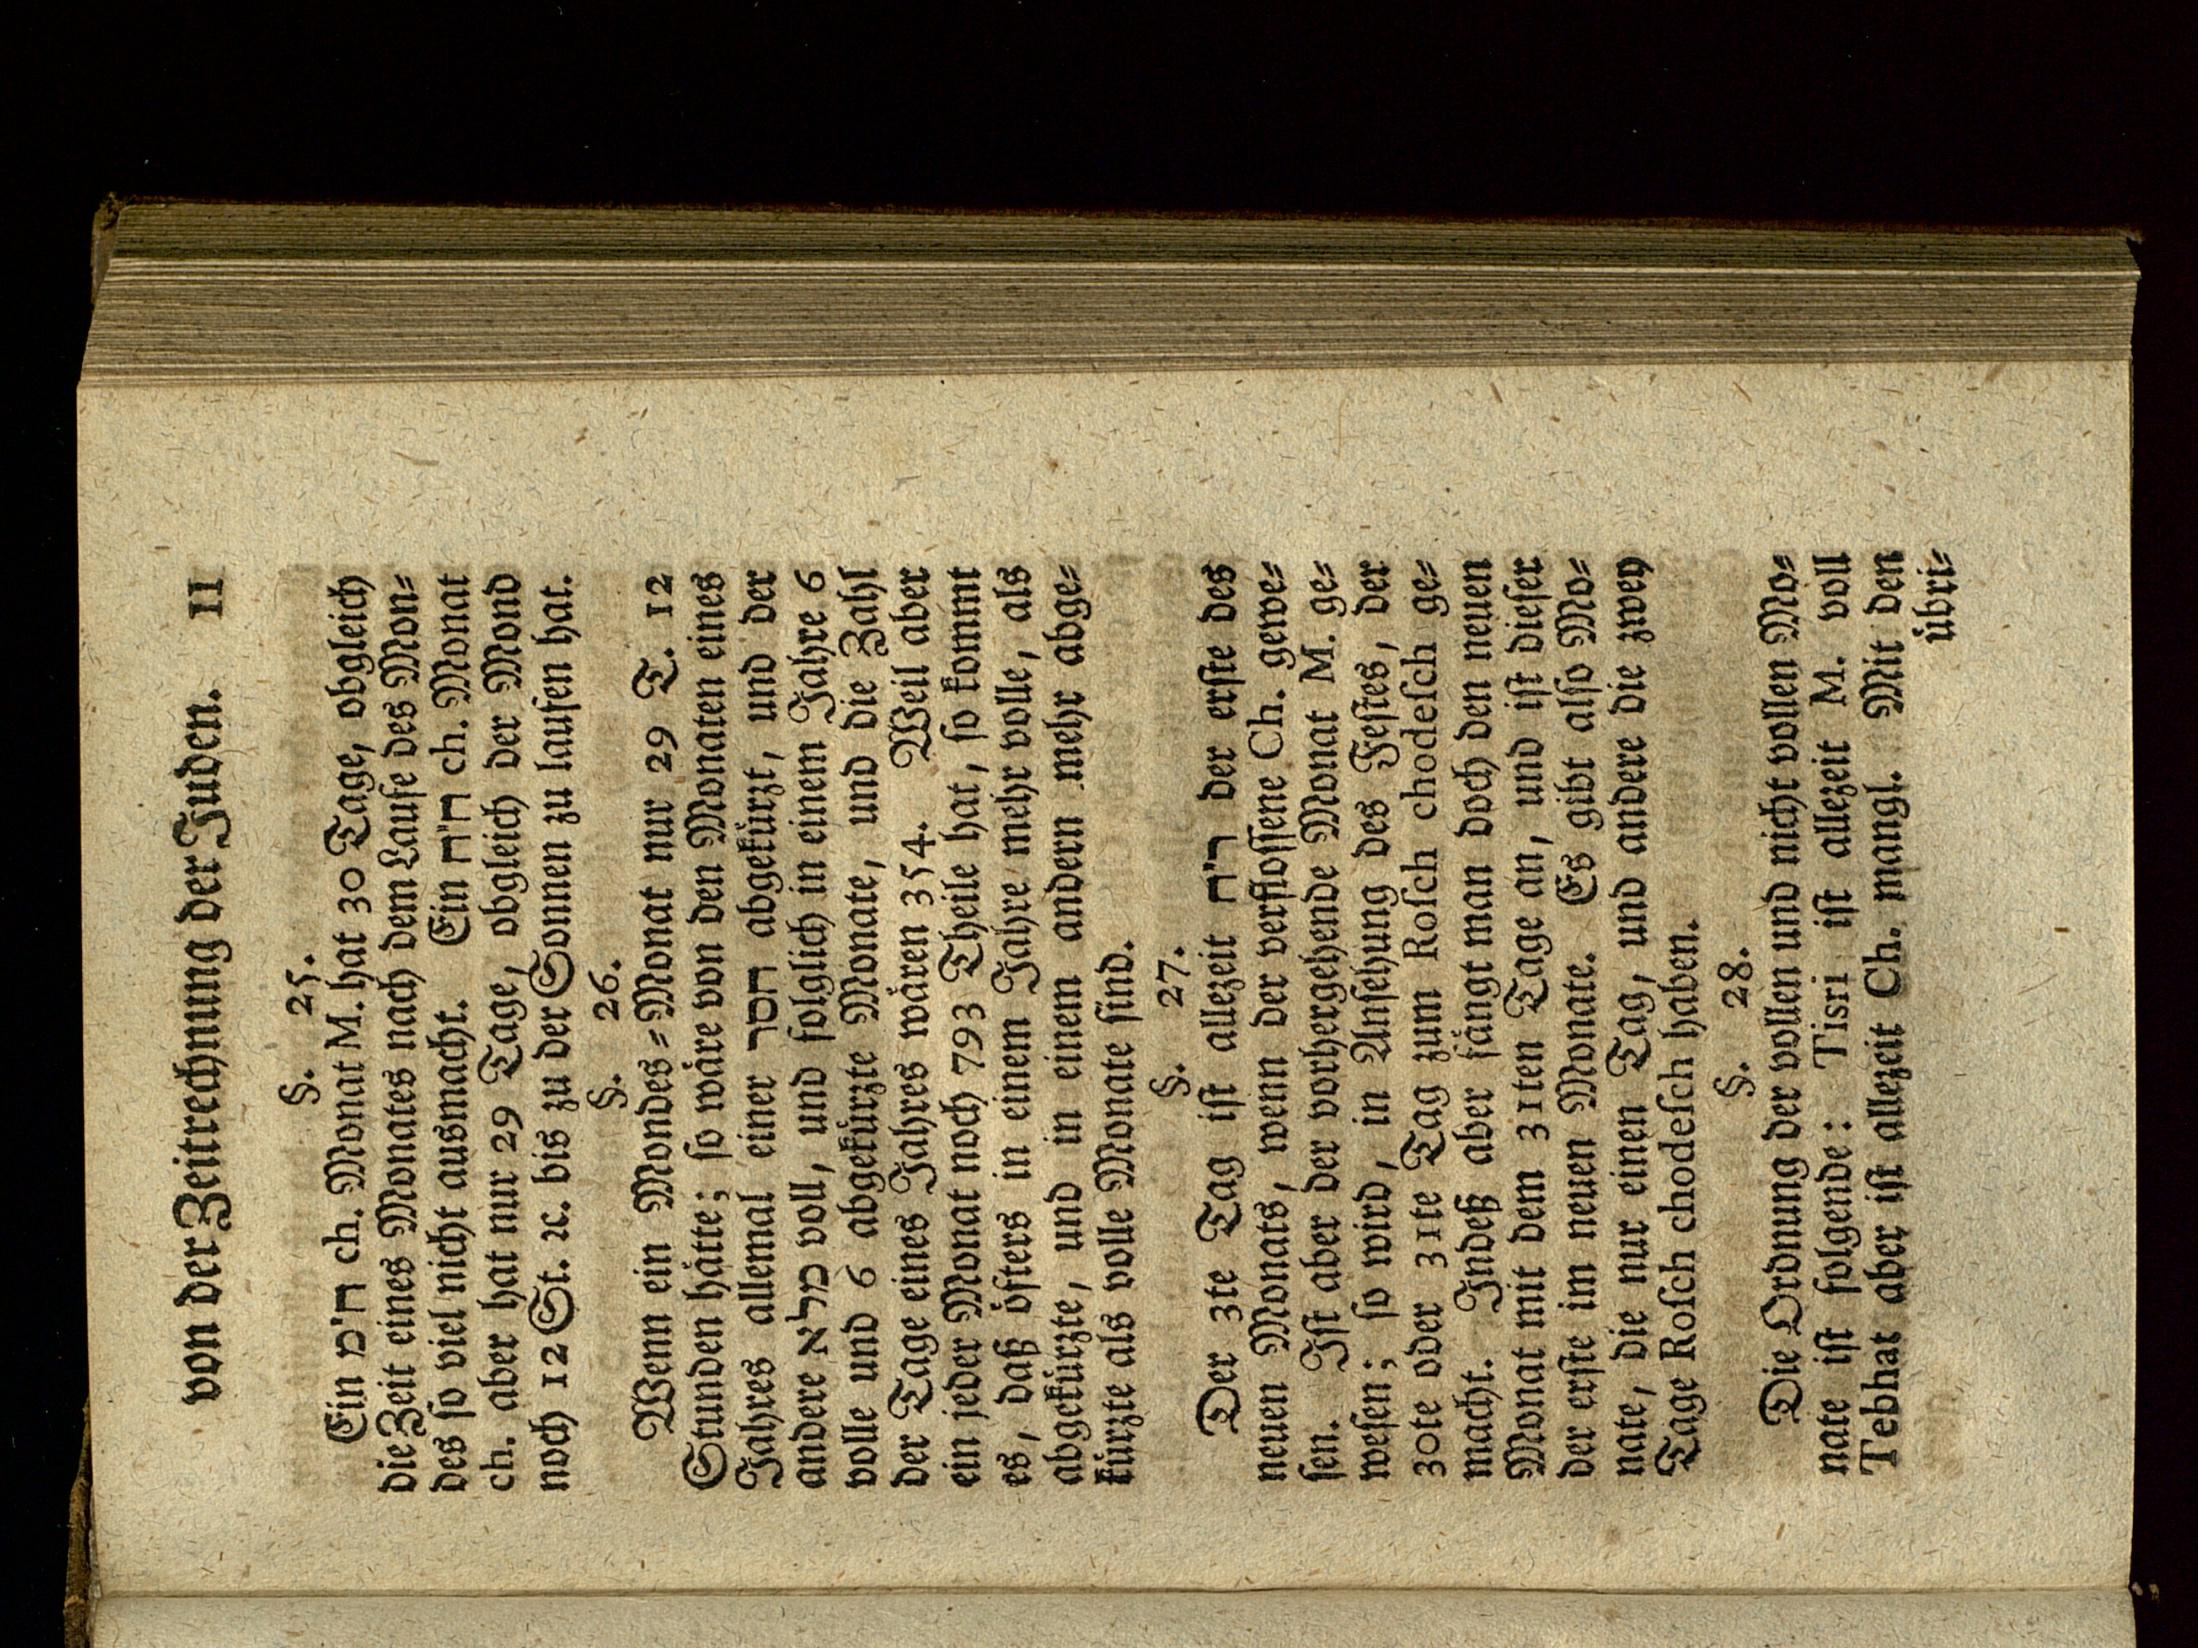 von der Zeitrechnung der Juden. 11
§. 25.
Ein ח״מ ch. Monat M. hat 30 Tage, obgleich
die Zeit eines Monates nach dem Laufe des Mon⸗
des so viel nicht ausmacht. Ein ח״ח ch. Monat
ch. aber hat nur 29 Tage, obgleich der Mond
noch 12 St. ꝛc. bis zu der Sonnen zu laufen hat.
§. 26.
Wenn ein Mondes⸗Monat nur 29 T. 12
Stunden hätte; so wäre von den Monaten eines
Jahres allemal einer חסר abgekürzt, und der
andere מלא voll, und folglich in einem Jahre 6
volle und 6 abgekürzte Monate, und die Zahl
der Tage eines Jahres wären 354. Weil aber
ein jeder Monat noch 793 Theile hat, so kommt
es, daß öfters in einem Jahre mehr volle, als
abgekürzte, und in einem andern mehr abge⸗
kürzte als volle Monate sind.
§. 27.
Der 3te Tag ist allezeit ר״ח der erste des
neuen Monats, wenn der verflossene Ch. gewe⸗
sen. Ist aber der vorhergehende Monat M. ge⸗
wesen; so wird, in Ansehung des Festes, der
30te oder 31te Tag zum Rosch chodesch ge⸗
macht. Indeß aber fängt man doch den neuen
Monat mit dem 31ten Tage an, und ist dieser
der erste im neuen Monate. Es gibt also Mo⸗
nate, die nur einen Tag, und andere die zwey
Tage Rosch chodesch haben.
§. 28.
Die Ordnung der vollen und nicht vollen Mo⸗
nate ist folgende: Tisri ist allezeit M. voll
Tebhat aber ist allezeit Ch. mangl. Mit den
übri⸗